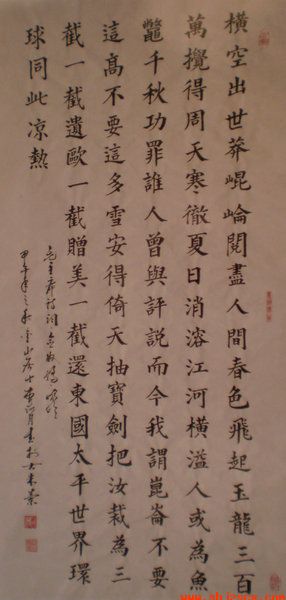 橫空出世莽崐崘閱盡人間春色飛起玉龍三百
萬攪得周天寒徹夏日消溶江河橫溢人或為魚
鼈千秋功罪誰人曾與評説而今我謂崑崙不要
這高不要這多雪安得倚天抽寶劍把汝裁為三
截一截遺歐一截贈美一截還東國太平世界環
球同此凉熱
毛主席詩詞念奴嬌
甲午年之秋